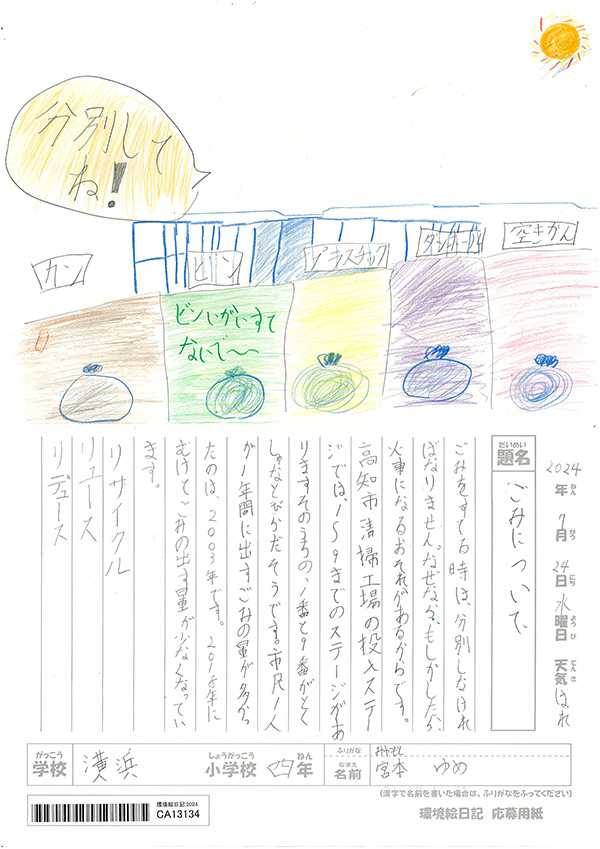 分別して
ね!
カン
ビン
プラスチック
ダンボール
空きかん
ビンいがいすて
ないで〜〜
2024年ねん 7月がつ 24日にち 水曜日ようび 天気てんき はれ
だいめい
題名 ごみについて
ごみをすてる時は、分別しなけれ
ばなりません。なぜなら、もしかしたら、
火事になるおそれがあるからです。
高知市清掃工場の投入ステー
ジでは、1〜9までのステージがあ
りますそのうちの、1番と9番がとく
しゅなとびらだそうです。市民1人
が1年間に出すごみの量が多かっ
たのは、2003年です。2018年に
むけてごみの出す量が少なくなってい
ます。
リサイクル
リユース
リデュース
がっこう
学校 横浜 しょうがっこう 小学校 四年ねん
ふりがな みやもと
なまえ
名前 宮本 ゆめ
(漢字で名前を書いた場合は、ふりがなをふってください)
環境絵日記2024
CA13134
環境絵日記 応募用紙